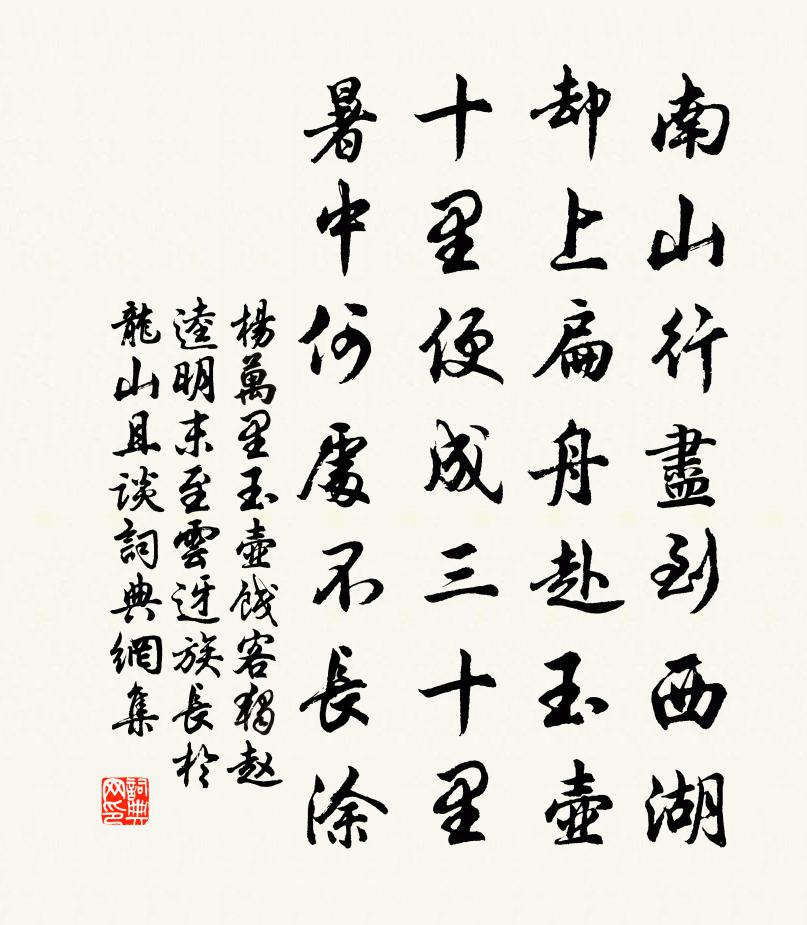 南山行盡到西湖
却上扁舟赴玉壺
十里便成三十里
暑中何處不長涂
楊萬里玉壺餞客獨赵
逵明末至雲迓族長於
龍山且談詞典網集
詞典网印